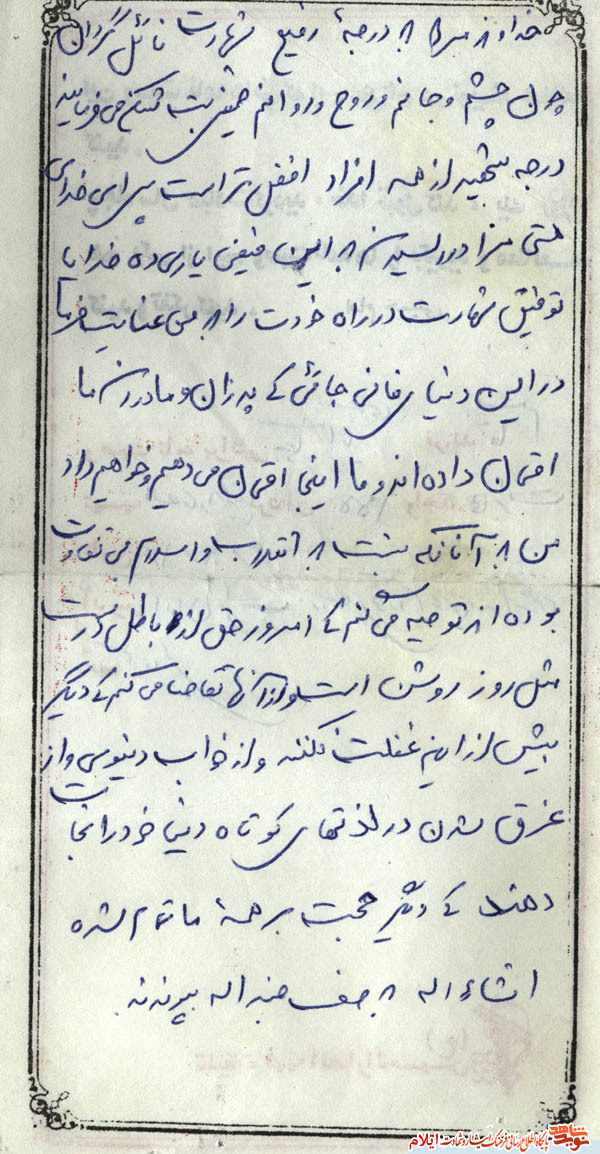 خداوند مرا به درجهٔ رفیع شهادت نائل گردان
چون چشم و جانم و روح و روانم خمینی بت شکن می فرمایند
درجه شهید از همه افراد افضل تر است پس ای خدای
متی مرا در رسیدن به این فیض یاری ده خدایا
توفیق شهادت در راه خودت را به من عنایت فرما
در این دنیای فانی جائی که پدران و مادران ما
امتحان داده اند و ما اینجا امتحان می دهیم و خواهیم داد
من به آنانکه نسبت به انقلاب و اسلام بی تفاوت
بوده اند توصیه می کنم که امروز حق از باطل درست
مثل روز روشن است و از آنها تقاضا می کنم که دیگر
بیش از این غفلت نکنند و از خواب دنیوی و از
غرق شدن در لذتهای کوتاه دنیا خود را نجات
دهند که دیگر حجت بر همهٔ ما تمام شده
انشاءاله به صف حزب اله بپیوندند.
نوید شاهد
پایگاه اطلاع رسانی فرهنگ ایثار و شهادت ایلام